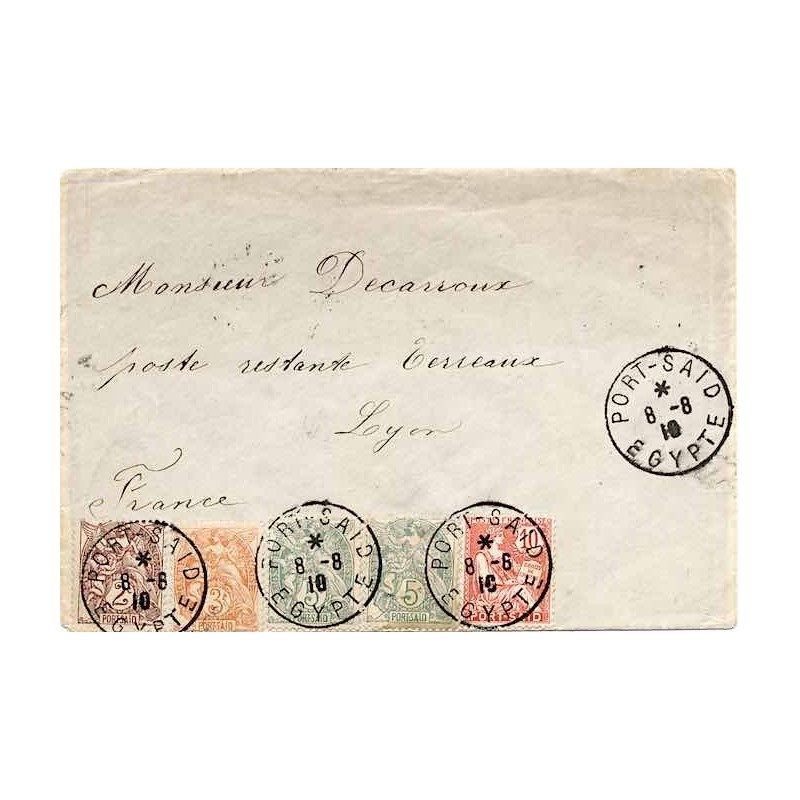 Monsieur Decarroux
poste restante Terreaux
Lyon
France
PORT-SAID
*
8 -8
10
EGYPTE
PORT-SAID
*
8 -8
10
EGYPTE
2
PORT-SAID
3
PORT-SAID
PORT-SAID
*
8 -8
10
EGYPTE
5
PORT-SAID
5
PORT-SAID
PORT-SAID
*
8 -8
10
EGYPTE
10
PORT-SAID